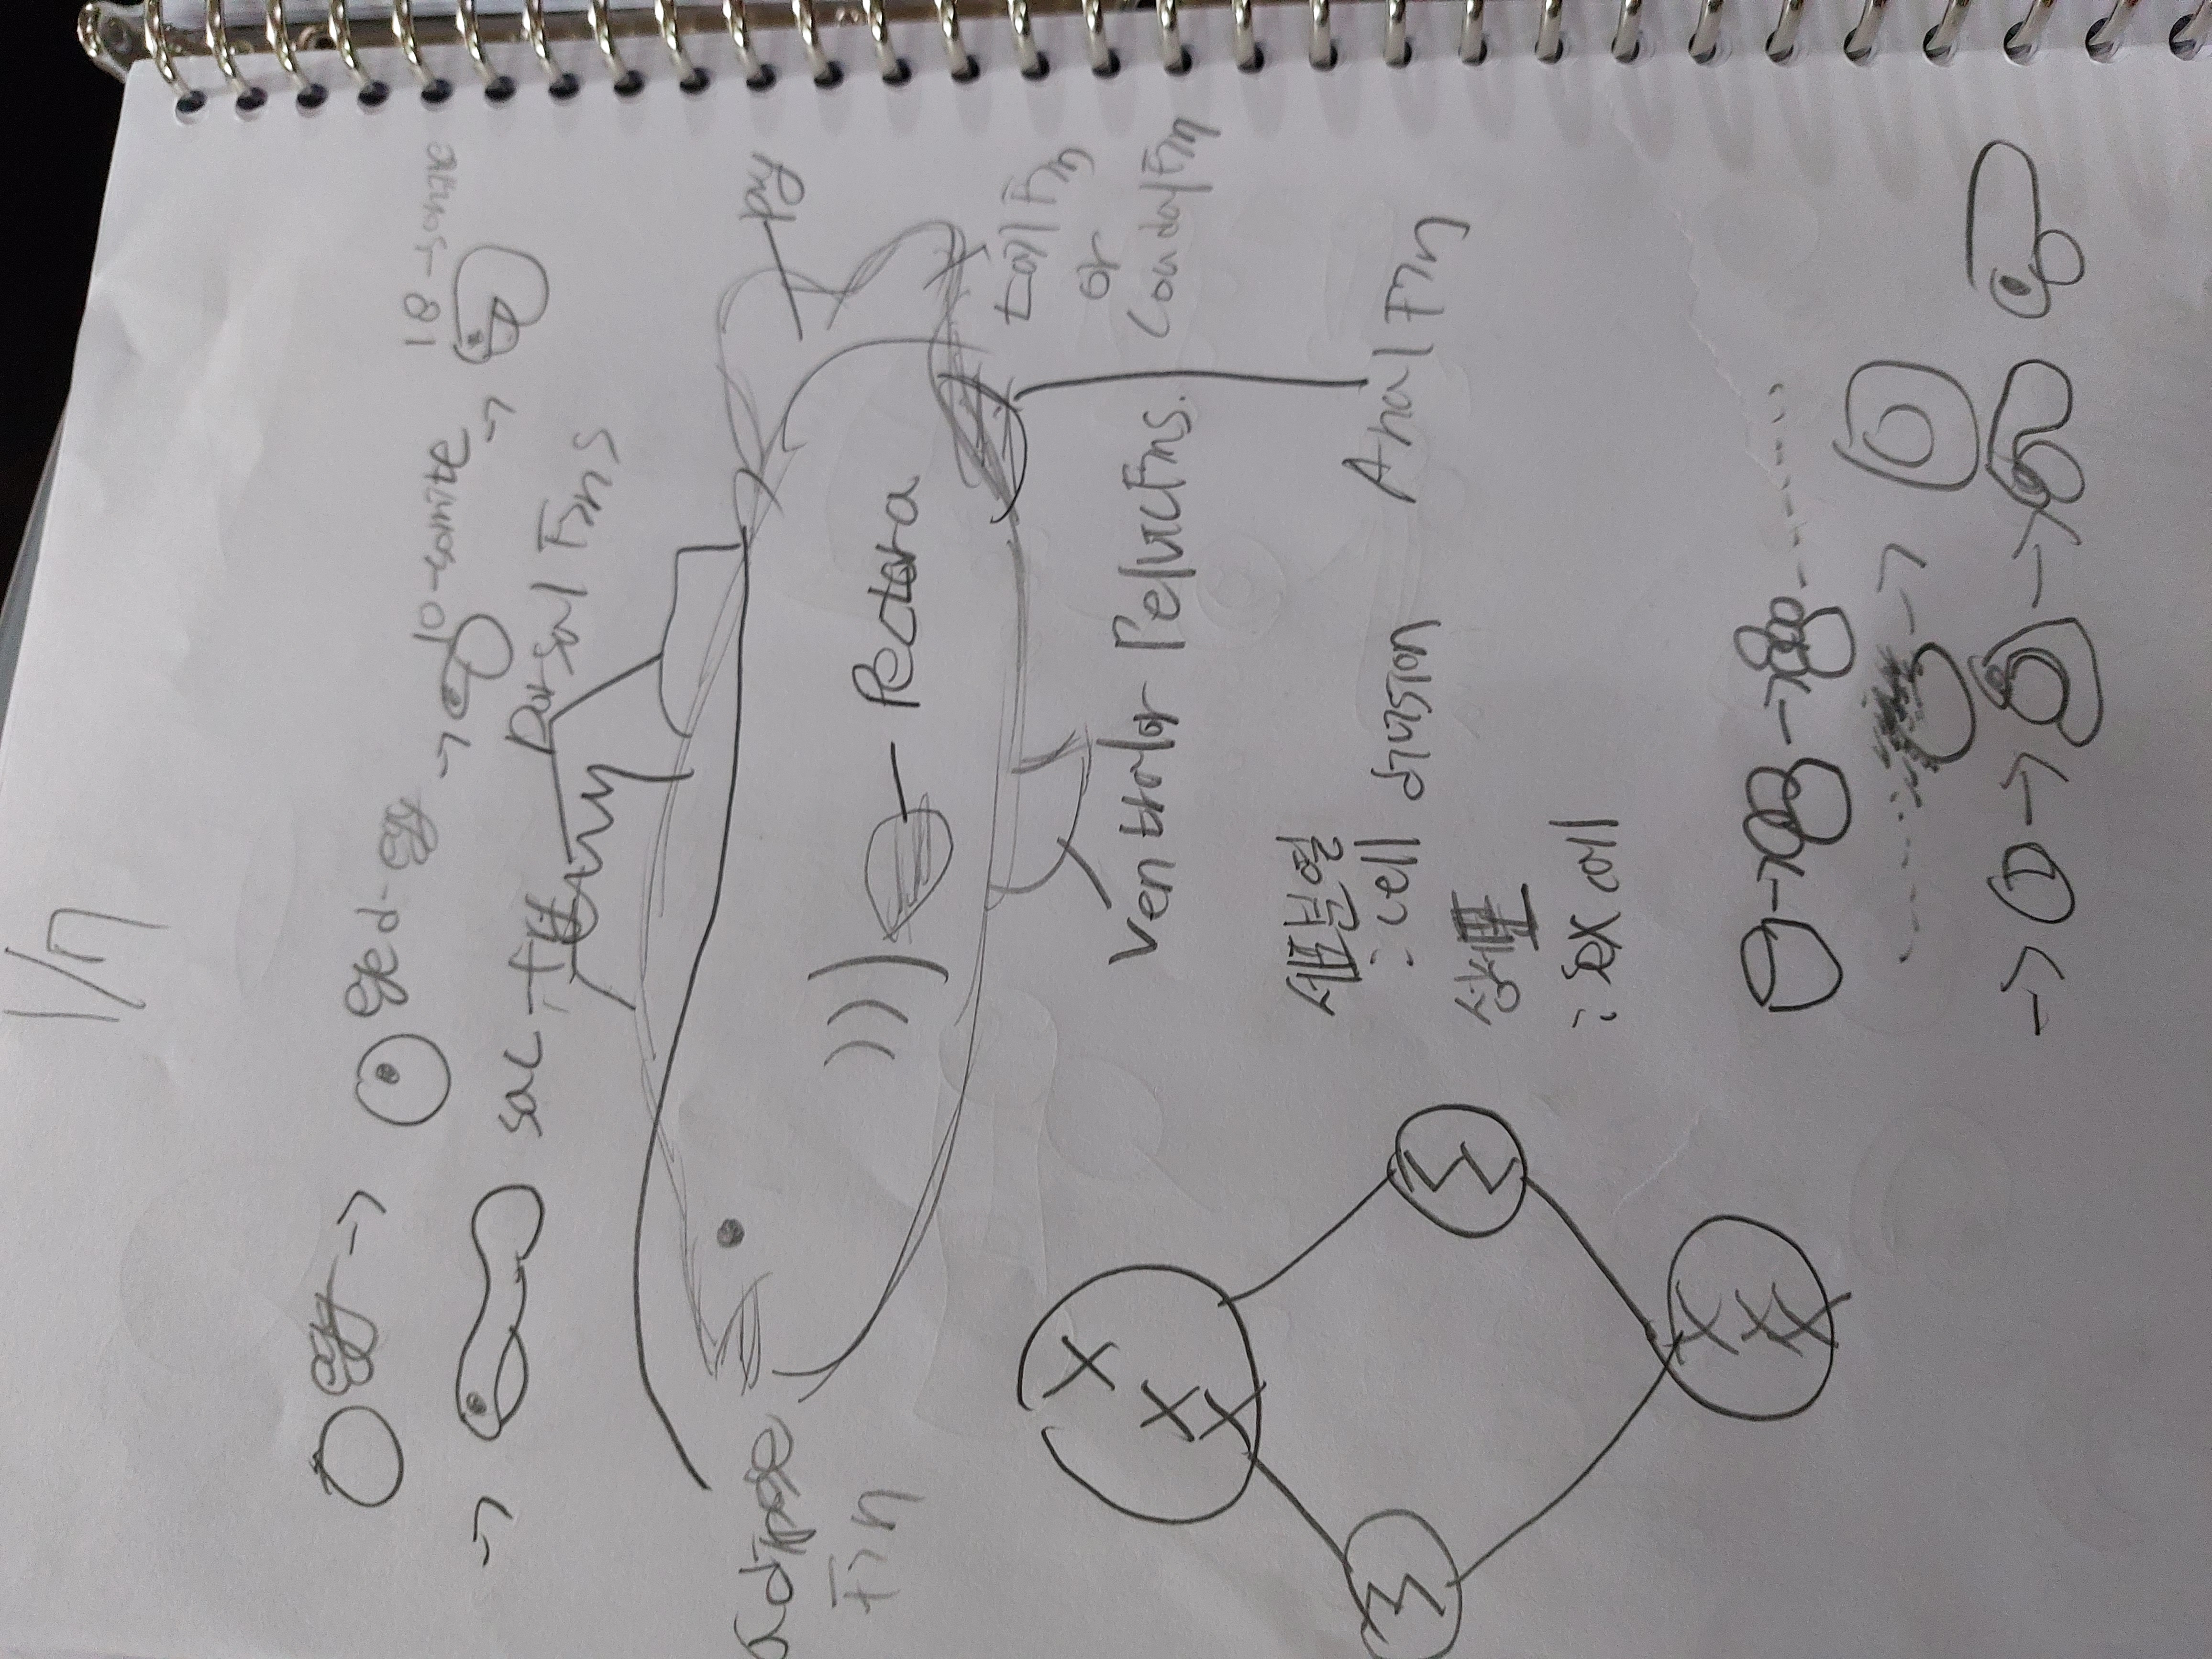 1/7
알 → eyed-알 → 10-somite → 18-somite
→ sac-fry
Dorsal Fins
adipose
Fin
Pectora
tail Fin
or
Cauday Fin
Ventrolor Pelvic Fins.
Anal Fin
세포분열
: cell division
성세포
: sex cell